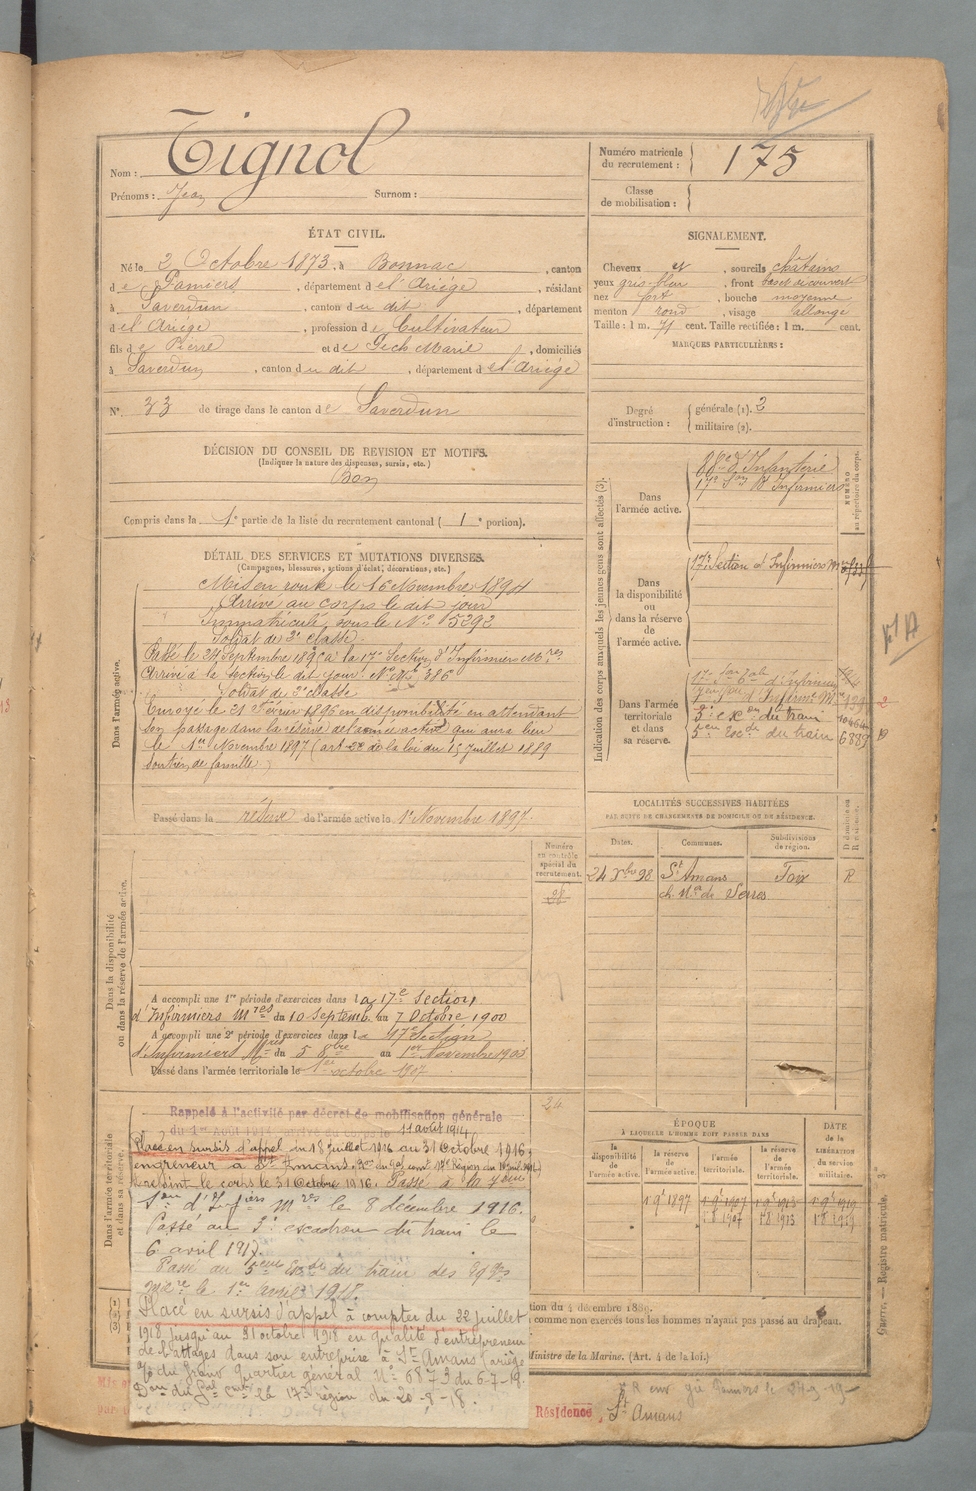 Nom : Tignol
Prénoms : Jean Surnom :
Numéro matricule du recrutement : 175
Classe de mobilisation :
ÉTAT CIVIL.
Né le 2 Octobre 1873, à Bonnac, canton
de Pamiers, département de l'Ariége, résidant
à Saverdun, canton du dit, département
de l'Ariége, profession de Cultivateur
fils de Pierre et de Tech Marie, domiciliés
à Saverdun, canton du dit, département de l'Ariége
N° 33 de tirage dans le canton de Saverdun
SIGNALEMENT.
Cheveux et, sourcils châtains
yeux gris-bleu, front bas et découvert
nez fort, bouche moyenne
menton rond, visage allongé
Taille : 1 m. 71 cent. Taille rectifiée : 1 m. cent.
MARQUES PARTICULIÈRES :
Degré d'instruction : générale (1). 2
militaire (2).
DÉCISION DU CONSEIL DE REVISION ET MOTIFS.
(Indiquer la nature des dispenses, sursis, etc.)
Bon
Compris dans la 1e partie de la liste du recrutement cantonal (1e portion).
DÉTAIL DES SERVICES ET MUTATIONS DIVERSES.
(Campagnes, blessures, actions d'éclat, décorations, etc.)
Dans l'armée active.
Mis en route le 16 Novembre 1894
Arrivé au corps le dit jour
Immatriculé sous le N° 5292
Soldat de 2e classe.
Passé le 24 Septembre 1895 à la 17e Section d'Infirmiers Mres
Arrivé à la section le dit jour. N° Mle 386
Soldat de 2e classe
Envoyé le 21 Février 1896 en disponibilité en attendant
son passage dans la réserve de l'armée active qui aura lieu
le 1er Novembre 1897 (art 22 de la loi du 15 Juillet 1889
soutien de famille)
Passé dans la réserve de l'armée active le 1er Novembre 1897.
Indication des corps auxquels les jeunes gens sont affectés (3).
NUMÉRO au répertoire du corps.
Dans l'armée active.
88e d'Infanterie
17e Son d'Infirmiers
Dans la disponibilité ou dans la réserve de l'armée active.
17e Section d'Infirmiers Mres
Dans l'armée territoriale et dans sa réserve.
5e esc on du train
5eme Esc du train 6889
LOCALITÉS SUCCESSIVES HABITÉES
PAR SUITE DE CHANGEMENTS DE DOMICILE OU DE RÉSIDENCE.
Dates. Communes. Subdivisions de région. D domicile R résidence.
24 Xbre 98 St Amans Foix R
Dans la disponibilité ou dans la réserve de l'armée active.
Numéro au contrôle spécial du recrutement.
28
A accompli une 1re période d'exercices dans la 17e Section
d'Infirmiers Mres du 10 Septemb. au 7 Octobre 1900
A accompli une 2e période d'exercices dans la 17e Section
d'Infirmiers Mres du 5 8bre au 1er Novembre 1903
Passé dans l'armée territoriale le 1er octobre 1907
Dans l'armée territoriale et dans sa réserve.
Rappelé à l'activité par décret de mobilisation générale
du 1er Août 1914 arrivé au corps le 11 août 1914
Placé en sursis d'appel du 18 juillet 1916 au 31 Octobre 1916,
engreneur à St Amans,
rejoint le corps le 31 Octobre 1916. Passé à la 7eme
Son d'Infiers Mres le 8 décembre 1916.
Passé au 5e escadron du train le
6 avril 1917.
Passé au 5eme Esc du train des Eqges
Mre le 1er avril 1918.
Placé en sursis d'appel à compter du 22 juillet
1918 jusqu'au 31 octobre 1918 en qualité d'entrepreneur
de battages dans son entreprise à St Amans (ariège
du Grand Quartier général N° 6873 du 6-7-18.
Don du Gal Cmt la 17e région du 20-8-18.
ÉPOQUE
À LAQUELLE L'HOMME DOIT PASSER DANS
la disponibilité de l'armée active. la réserve de l'armée active. l'armée territoriale. la réserve de l'armée territoriale. DATE de la LIBÉRATION du service militaire.
1 9e 1897 1 9e 1907 1 9e 1913 1 9e 1919
1 8 1907 1 8 1913 1 8 1919
tion du 4 décembre 1889.
comme non exercés tous les hommes n'ayant pas passé au drapeau.
Ministre de la Marine. (Art. 4 de la loi.)
Résidence, St Amans
Guerre. — Registre matricule.